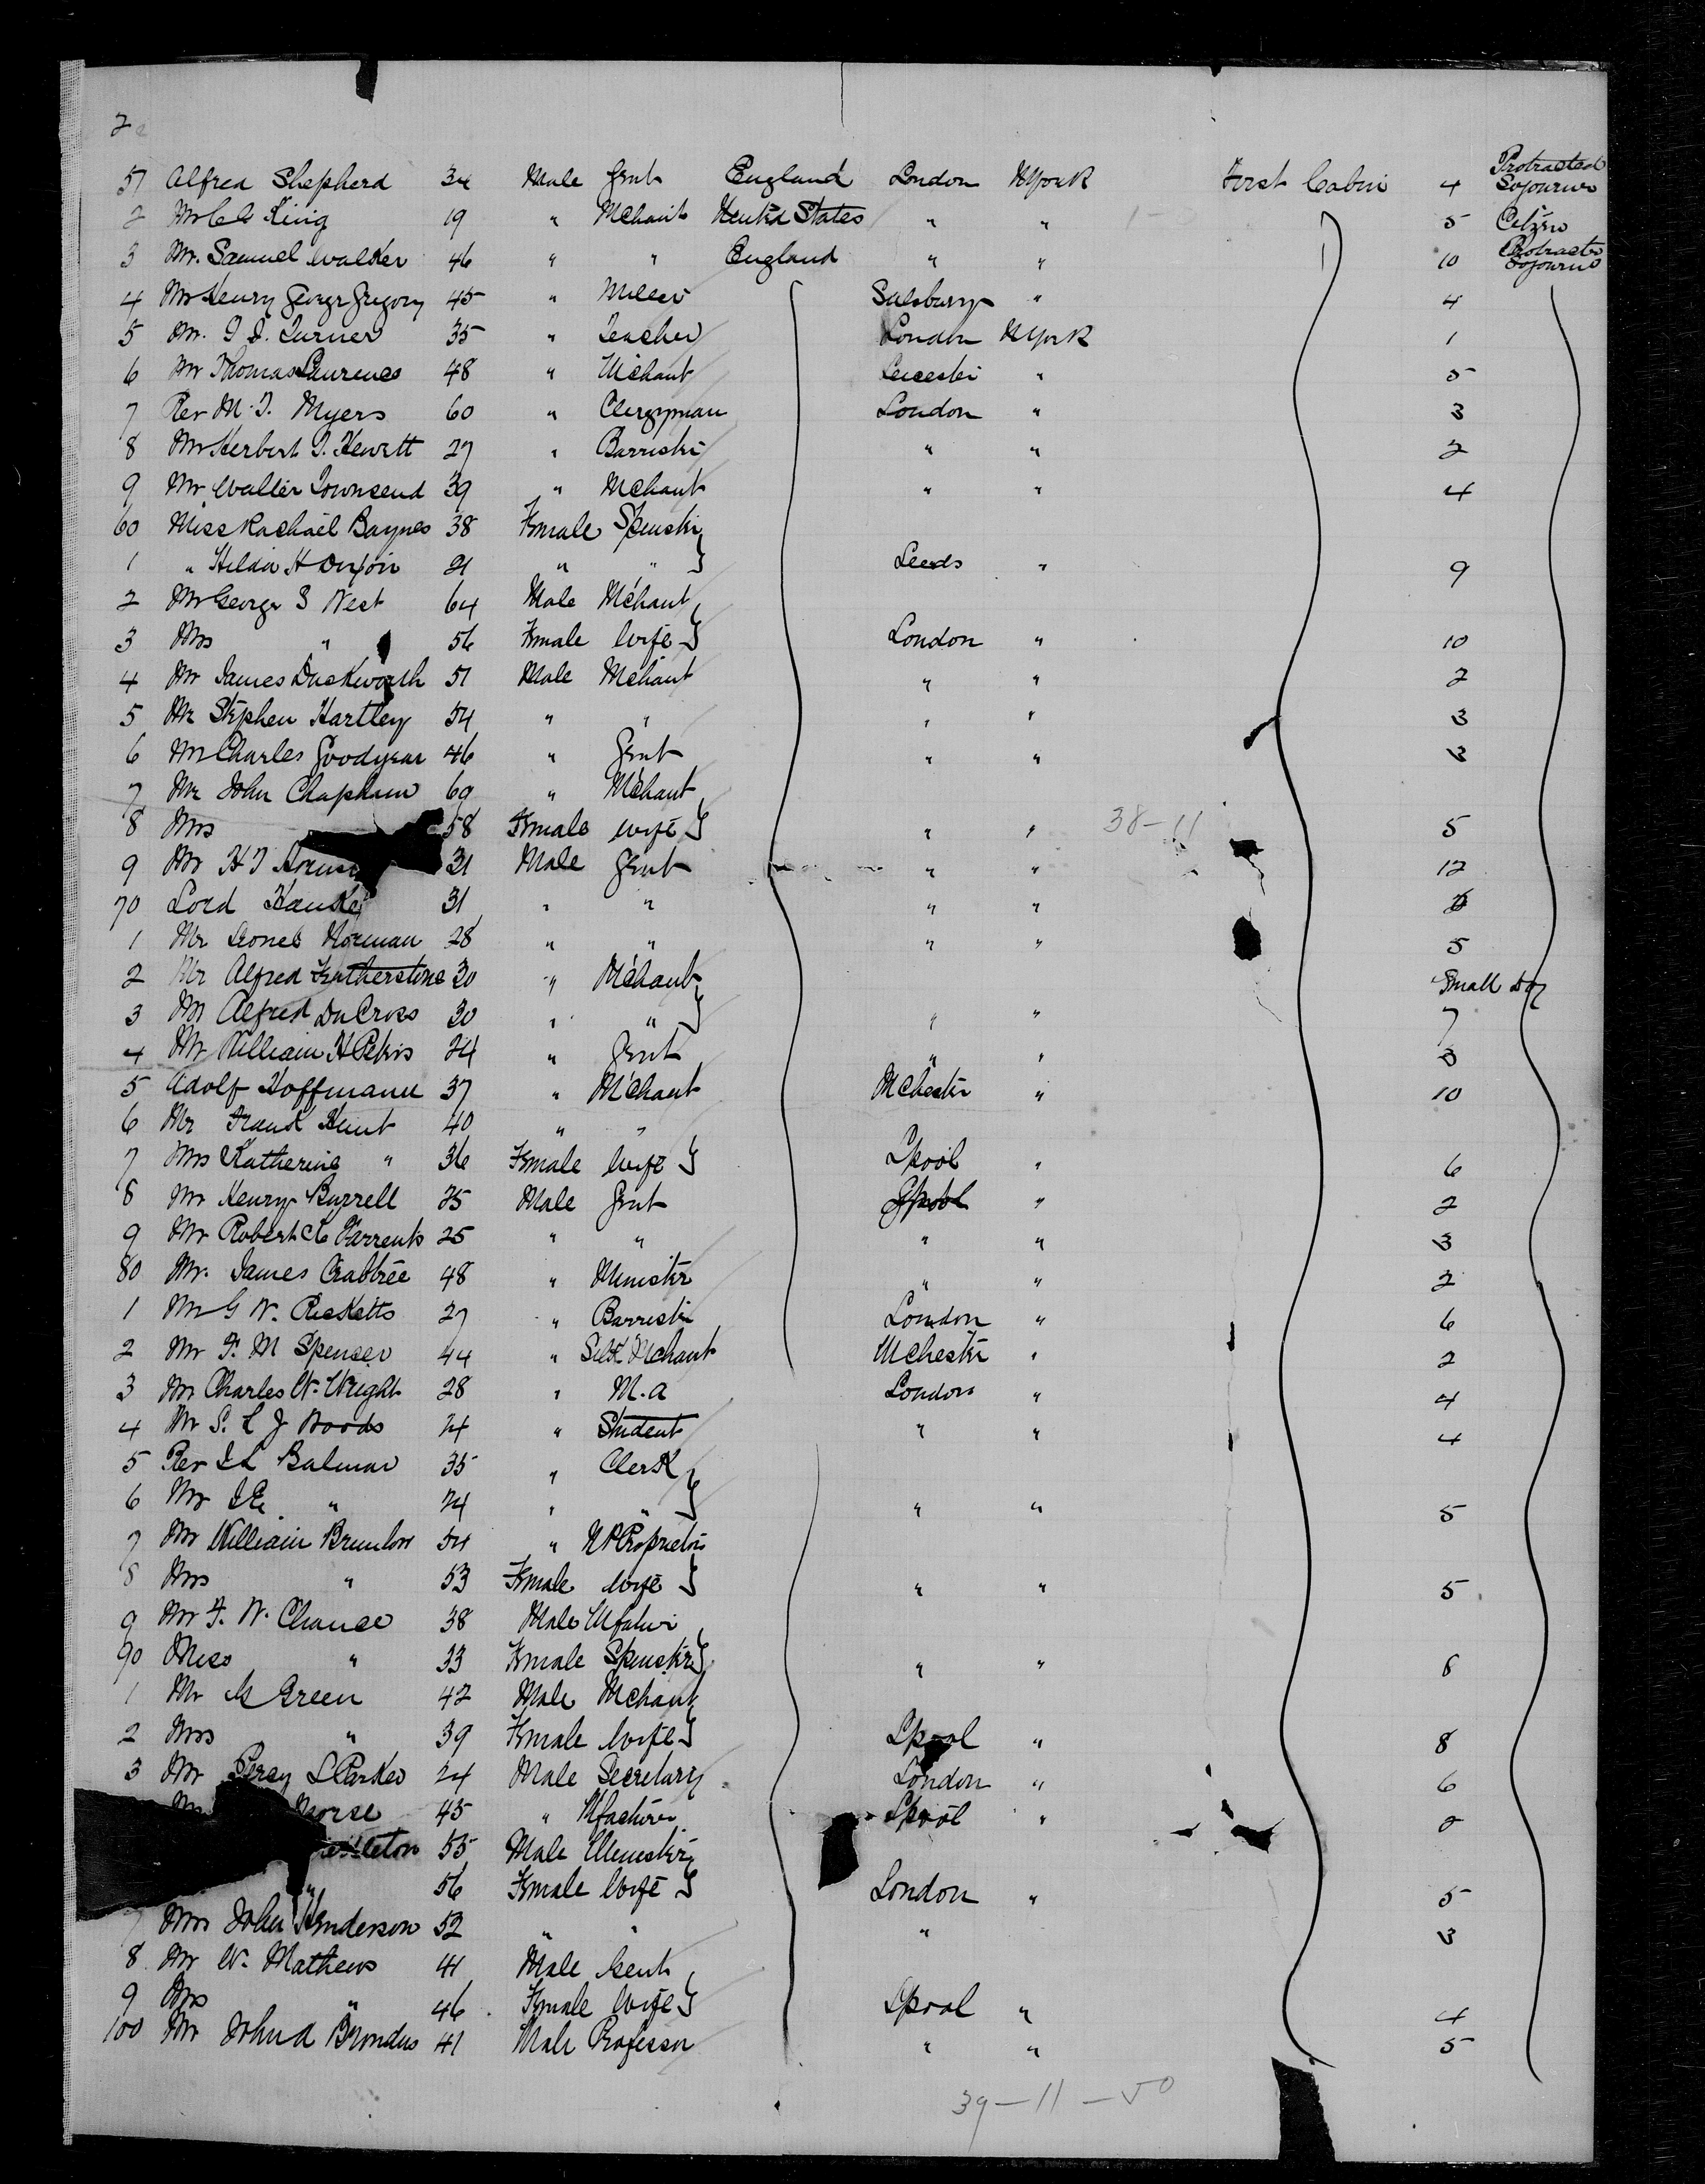 2
51 Alfred Shepherd 34 Male Gent England London NYork First Cabin 4 Protracted Sojourn
2 Mr C G King 19 " Mchant United States " " 5 Citizen
3 Mr. Samuel Walker 46 " " England " " 10 Protracted Sojourn
4 Mr Henry George Gregory 45 " Miller Salsbury " 4
5 Mr. Turner 35 " Teacher London NYork 1
6 Mr Thomas Laurence 48 " Mchant Leicester " 5
7 Rev M. T. Myers 60 " Clergyman London " 3
8 Mr Herbert T. Hewett 27 " Barrister " " 2
9 Mr Walter Townsend 39 " Mchant " " 4
60 Miss Rachael Baynes 38 Female Spinster
1 " Hilda H 21 " " Leeds " 9
2 Mr George S West 64 Male Mchant
3 Mrs " 56 Female Wife London " 10
4 Mr James Duckworth 51 Male Mchant " " 2
5 Mr Stephen Hartley 54 " " " " 3
6 Mr Charles Goodyear 46 " Gent " " 3
7 Mr John Chapham 69 " Mchant
8 Mrs 58 Female Wife " " 38-11 5
9 Mr H T 31 Male Gent " " 12
70 Lord 31 " " " "
1 Mr Lionel Norman 28 " " " " 5
2 Mr Alfred Featherstone 30 " Mchant Small
3 Mr Alfred DuCross 30 " " " " 7
4 Mr William H Pekis 24 " Gent " " 3
5 Adolf Hoffmann 37 " Mchant Mchester " 10
6 Mr Frank Hunt 40 " "
7 Mrs Katherine " 36 Female Wife Lpool " 6
8 Mr Henry Burrell 25 Male Gent Lpool " 2
9 Mr Robert Parrents 25 " " " " 3
80 Mr. James Crabtree 48 " Minister " " 2
1 Mr G W. Ricketts 27 " Barrister London " 6
2 Mr F. M Spenser 44 " Silk Mchant Mchester " 2
3 Mr Charles W. Wright 28 " M.a London " 4
4 Mr S. L J Woods 24 " Student " " 4
5 Rev Balmer 35 " Clerk
6 Mr " 24 " " " " 5
7 Mr William 54 " Proprietor
8 Mrs " 53 Female Wife " " 5
9 Mr F. W. Chance 38 Male Mfatur
90 Miss " 33 Female Spinster " " 8
1 Mr Green 42 Male Mchant
2 Mrs " 39 Female Wife Lpool " 8
3 Mr Percy L Parker 24 Male Secretary London " 6
Morse 45 " Mfacturer Lpool "
55 Male Minister
" 56 Female Wife London " 5
7 Mrs John Henderson 52 " " " 3
8 Mr W. Mathews 41 Male Gent
9 Mrs " 46 Female Wife Lpool " 4
100 Mr John A 41 Male Professor " " 5
39-11-50